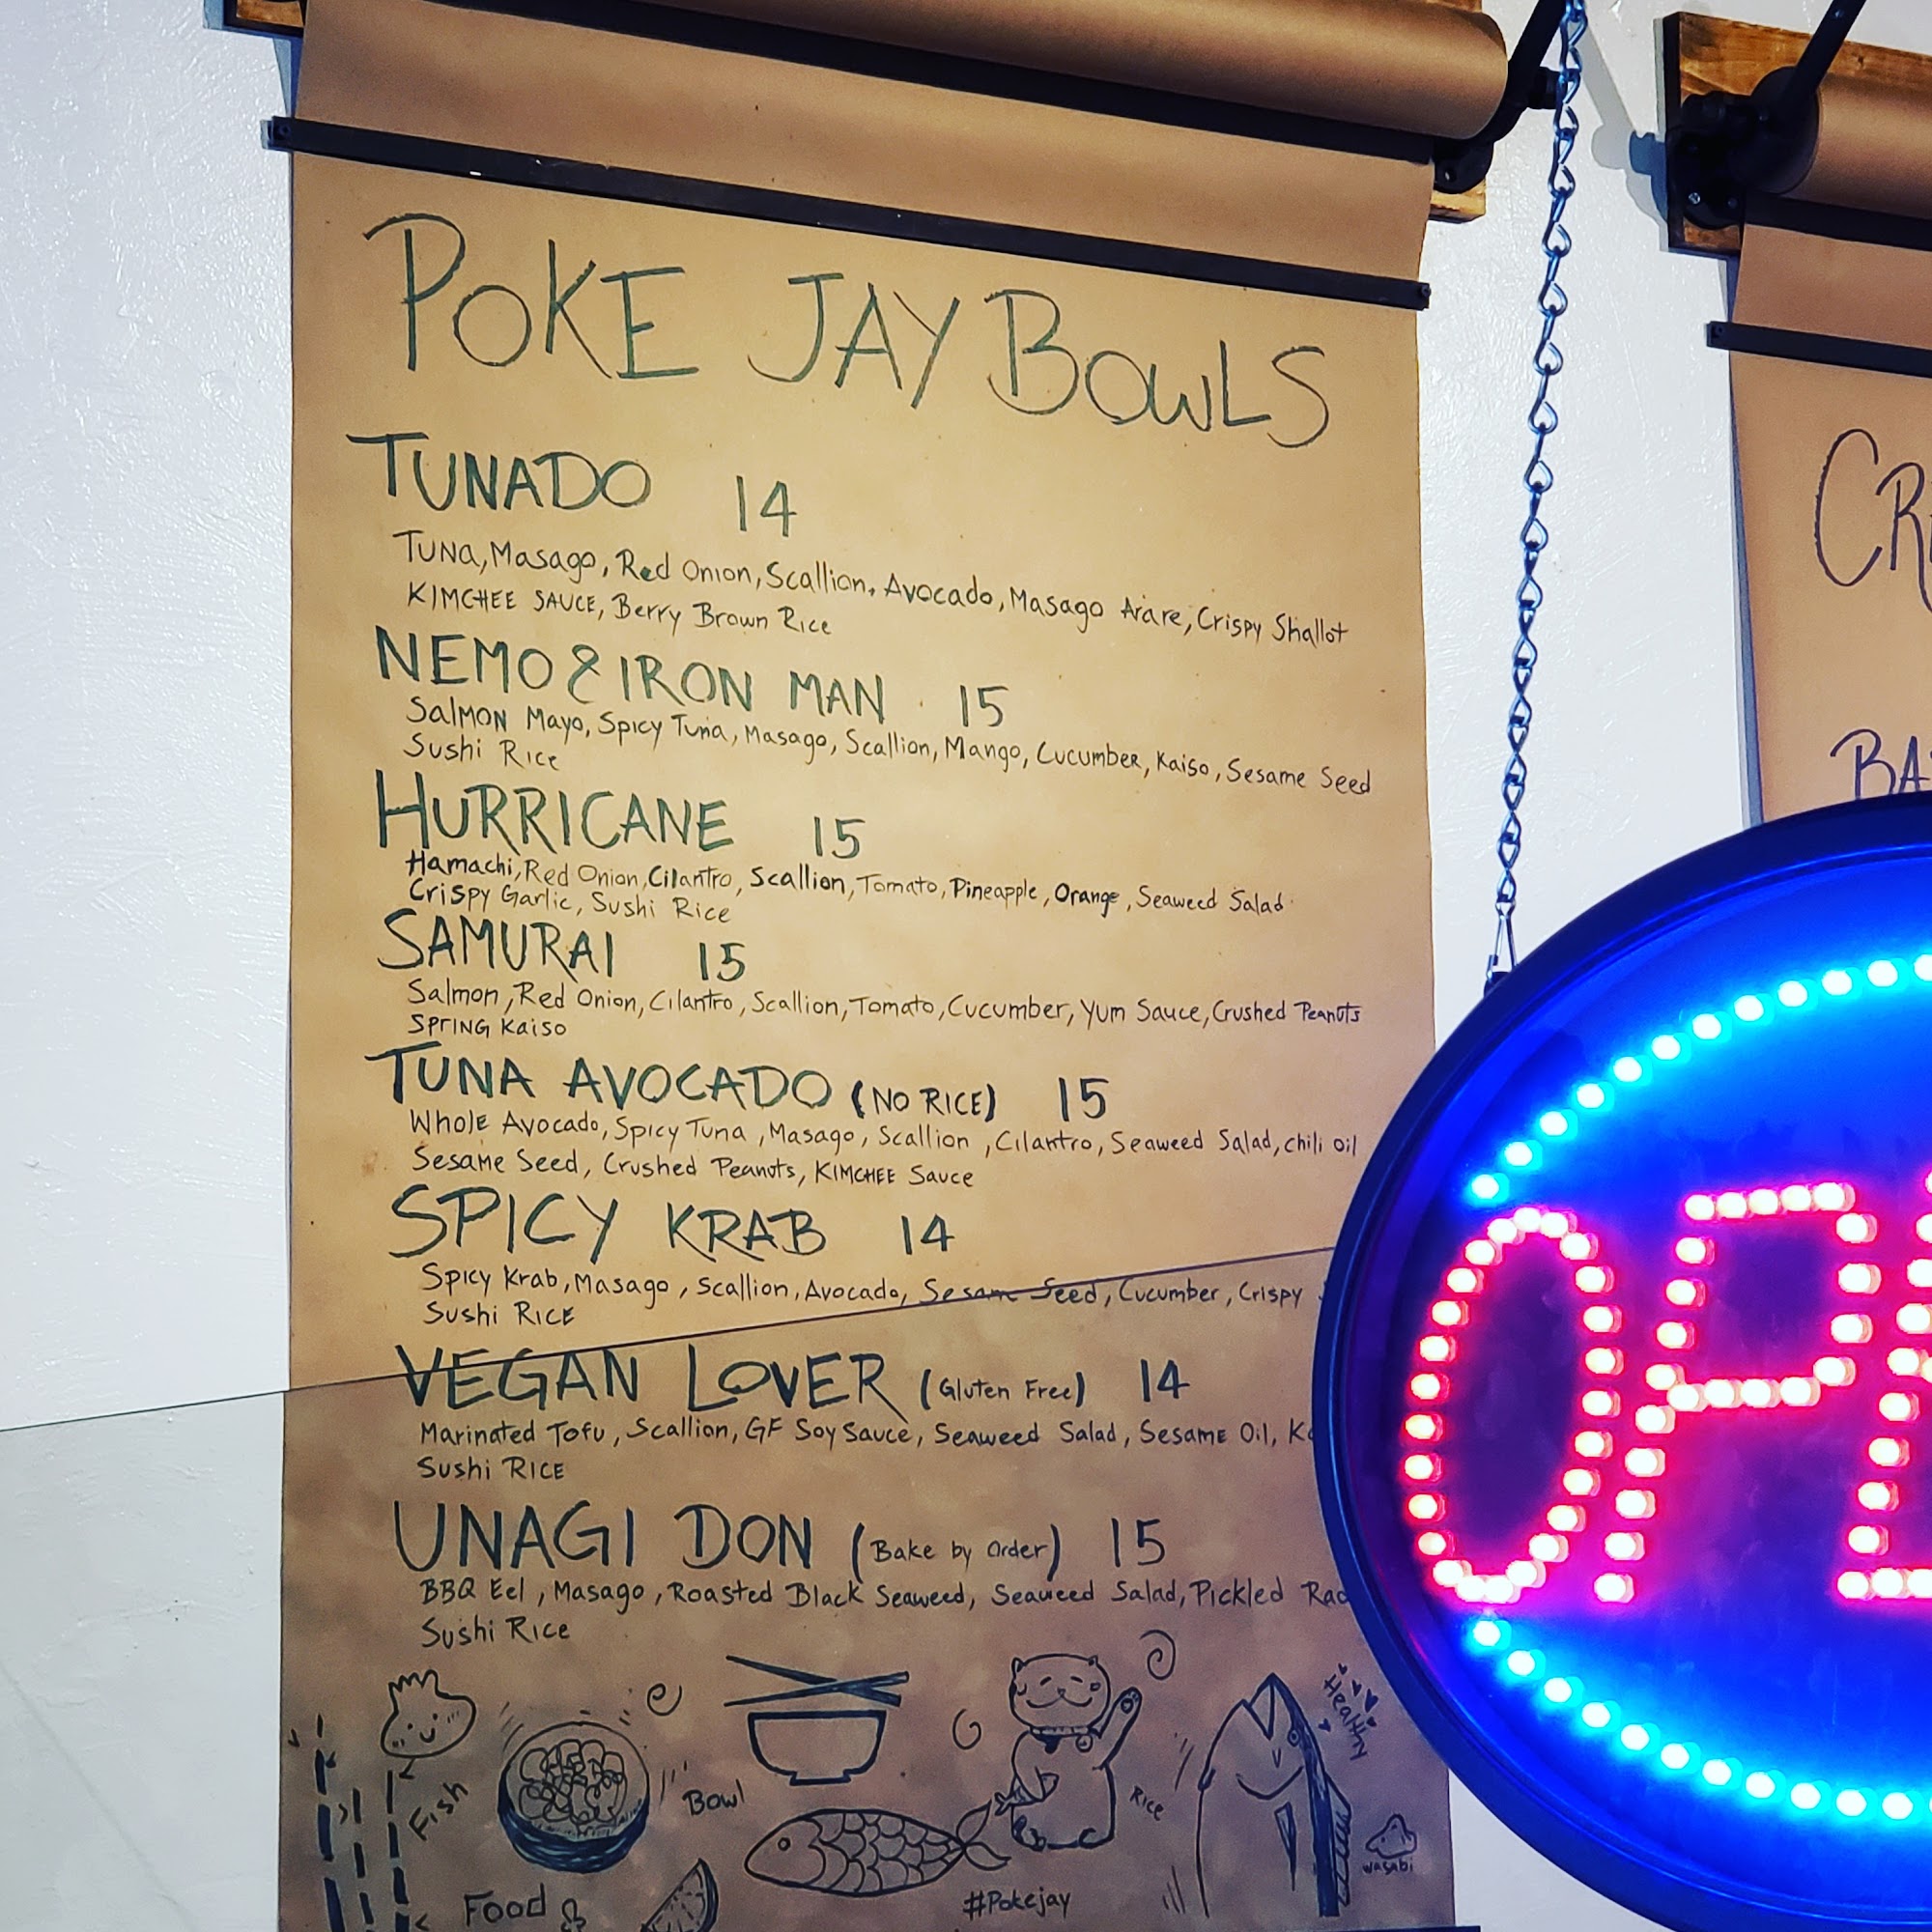 POKE JAY BOWLS
TUNADO 14
TUNA, Masago, Red Onion, Scallion, Avocado, Masago Arare, Crispy Shallot
KIMCHEE SAUCE, Berry Brown Rice
NEMO & IRON MAN 15
Salmon Mayo, Spicy Tuna, Masago, Scallion, Mango, Cucumber, Kaiso, Sesame Seed
Sushi Rice
HURRICANE 15
Hamachi, Red Onion, Cilantro, Scallion, Tomato, Pineapple, Orange, Seaweed Salad
Crispy Garlic, Sushi Rice
SAMURAI 15
Salmon, Red Onion, Cilantro, Scallion, Tomato, Cucumber, Yum Sauce, Crushed Peanuts
SPRING Kaiso
TUNA AVOCADO (NO RICE) 15
Whole Avocado, Spicy Tuna, Masago, Scallion, Cilantro, Seaweed Salad, chili oil
Sesame Seed, Crushed Peanuts, KIMCHEE Sauce
SPICY KRAB 14
Spicy Krab, Masago, Scallion, Avocado, Sesame Seed, Cucumber, Crispy
Sushi RICE
VEGAN LOVER (Gluten Free) 14
Marinated Tofu, Scallion, GF Soy Sauce, Seaweed Salad, Sesame Oil,
Sushi RICE
UNAGI DON (Bake by Order) 15
BBQ Eel, Masago, Roasted Black Seaweed, Seaweed Salad, Pickled
Sushi Rice
Healthy
Fish
Bowl
Rice
wasabi
Food
#Pokejay